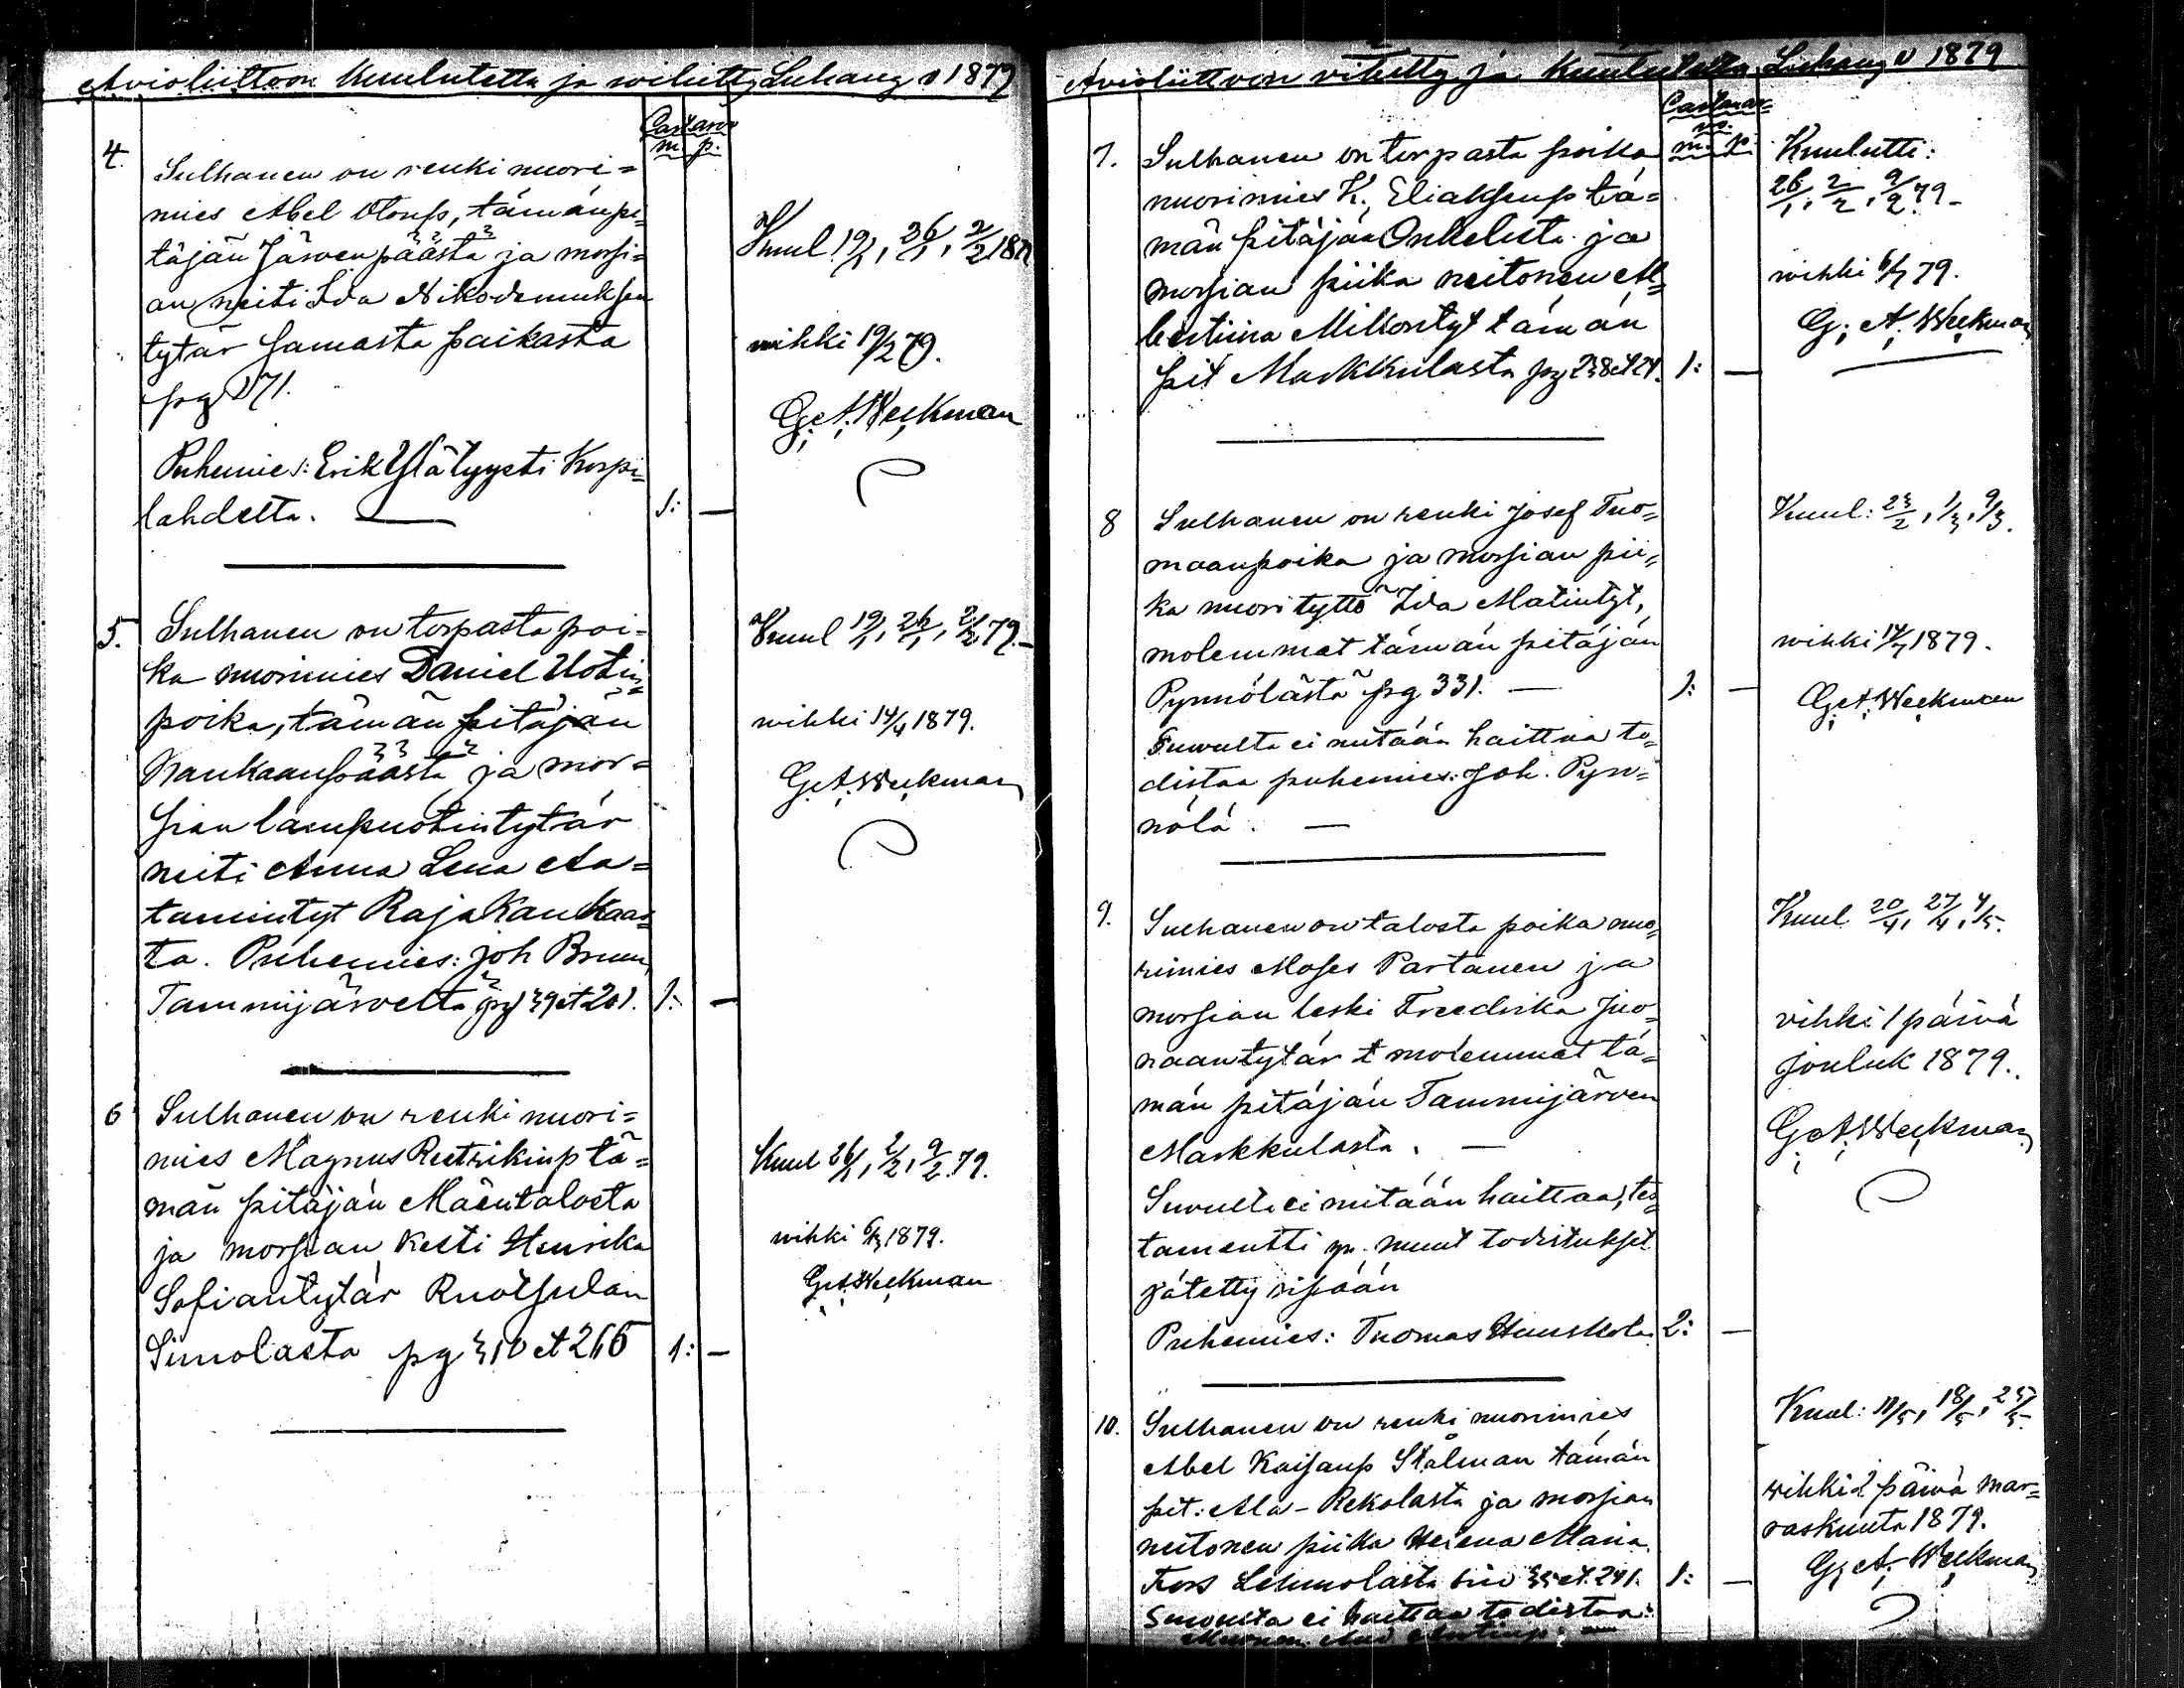 Avioliittoon Kuulutettu ja wihitty Luhang v 1879
Castarv
m. p.
4.
Sulhanen on renki nuori=
mies Abel Otonp, tämän pi=
täjän Järvenpäästä ja morsi=
an neiti Ida Nikodemuksen
tytär samasta paikasta
pg 271.
Puhemies: Erik Ylätyysti Korpi=
lahdelta. —
1: —
Kuul 19/1, 26/1, 2/2 187
wihki 19/2 79.
G. A. Weckman
5.
Sulhanen on torpasta poi=
ka nuorimies Daniel Uotin=
poika, tämän pitäjän
Haukaanpäästä ja mor=
sian lampuotintytär
neiti Anna Lena Aa=
tamintyt Rajakaukaas=
ta. Puhemies: Joh Bruun
Tammijärveltä pg 39 et 201.
1: —
Kuul 19/1, 26/1, 2/2 79. —
wihki 14/4 1879.
G. A. Weckman
6
Sulhanen on renki nuori=
mies Magnus Reetrikinp tä=
män pitäjän Mäentalosta
ja morsian Kesti Henrika
Sofiantytär Ruotsulan
Simolasta pg 310 et 266
1: —
Kuul 26/1, 2/2, 9/2. 79.
wihki 6/3 1879.
G. A. Weckman
Avioliittoon vihitty ja Kuulutettu Luhang v 1879
Castanar=
vo.
m. p.
7.
Sulhanen on torpasta poika
nuorimies K. Eliaksenp tä=
män pitäjän Onkelista ja
morsian piika neitonen Al=
bertiina Mikontyt tämän
pit Markkulasta pg 238 et 24.
1: —
Kuulutti:
26/1, 2/2, 9/2. 79 —
wihki 6/4 79.
G. A. Weckman
8
Sulhanen on renki Josef Tuo=
maanpoika ja morsian pii=
ka nuori tyttö Ida Matintyt,
molemmat tämän pitäjän
Pynnölästä pg 331. —
1: —
Suvulta ei mitään haittaa to=
distaa puhemies: Joh. Pyn=
nölä. —
Kuul: 23/2, 1/3, 9/3.
wihki 14/4 1879.
G. A. Weckman
9.
Sulhanen on talosta poika nuo=
rimies Moses Partanen ja
morsian leski Freedrika Juo=
naantytär t molemmat tä=
män pitäjän Tammijärven
Markkulasta. —
Suvulta ei mitään haittaa, tes=
tamentti ym. muut todistukset
jätetty sisään
Puhemies: Tuomas Hunskola
2: —
Kuul 20/4, 27/4, 4/5.
vihki 1 päivä
jouluk 1879.
G. A. Weckman
10.
Sulhanen on renki nuorimies
Abel Kaisanp Stålman tämän
pit: Ala-Rekolasta ja morsian
neitonen piika Helena Maria
Fors Lehmolasta siv 35 et. 241.
1: —
Suvulta ei haittaa todistaa:
Kuul: 11/5, 18/5, 25/5.
vihki 2 päivä mar=
raskuuta 1879.
G. A. Weckman